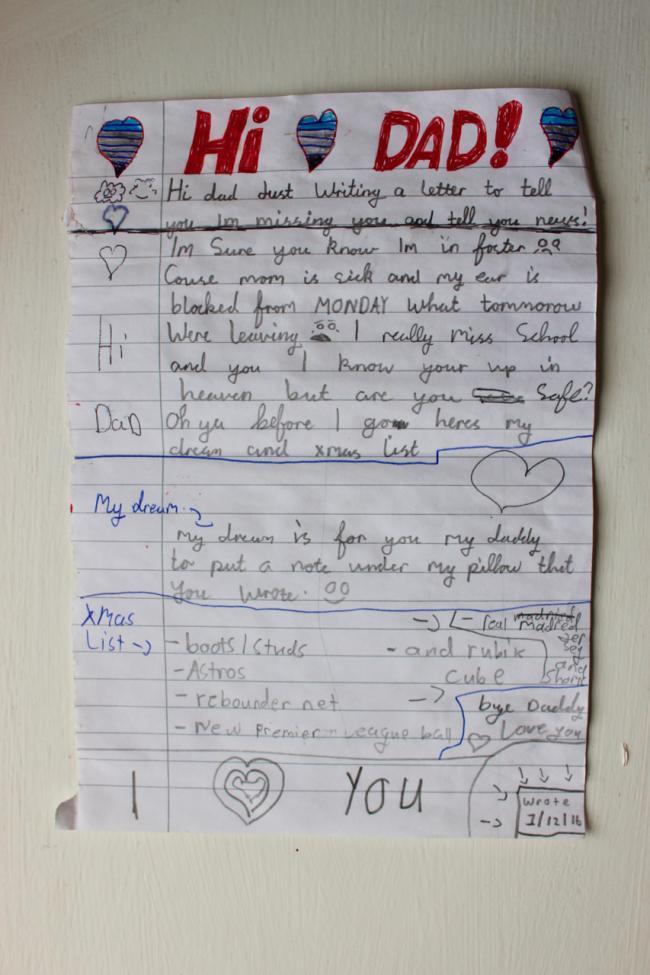 Hi DAD!
Hi dad Just Writing a letter to tell
you Im missing you and tell you news!
Im Sure you know Im in foster
Couse mom is sick and my ear is
blocked from MONDAY What tommorow
Hi
Were leaving I really miss School
and you I know your up in
heaven but are you Safe?
DaD
Oh ya before I go heres my
dream and xmas list
My dream
my dream is for you my daddy
to put a note under my pillow that
you wrote.
xmas
List
- boots/studs
- Astros
- rebounder net
- New Premier League ball
- real madried
madred
jer
sey
and
Short
- and rubik
cube
bye Daddy
Love you
I YOU
wrote
1/12/16